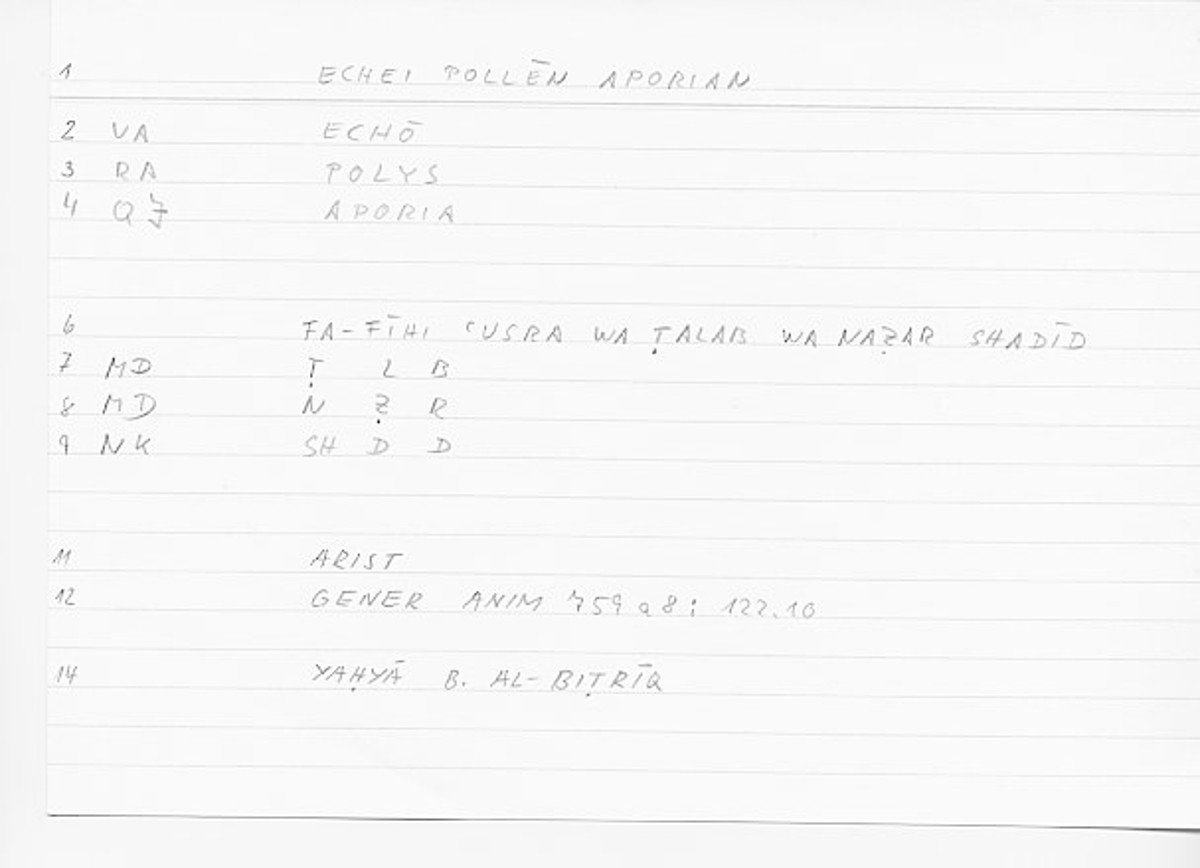 1 ECHEI POLLĒN APORIAN
2 VA ECHŌ
3 RA POLYS
4 QF APORIA
6 FA-FĪHI ʿUSRA WA ṬALAB WA NAẒAR SHADĪD
7 MD Ṭ L B
8 MD N Ẓ R
9 NK SH D D
11 ARIST
12 GENER ANIM 759 a 8; 122.10
14 YAḤYĀ B. AL-BIṬRĪQ